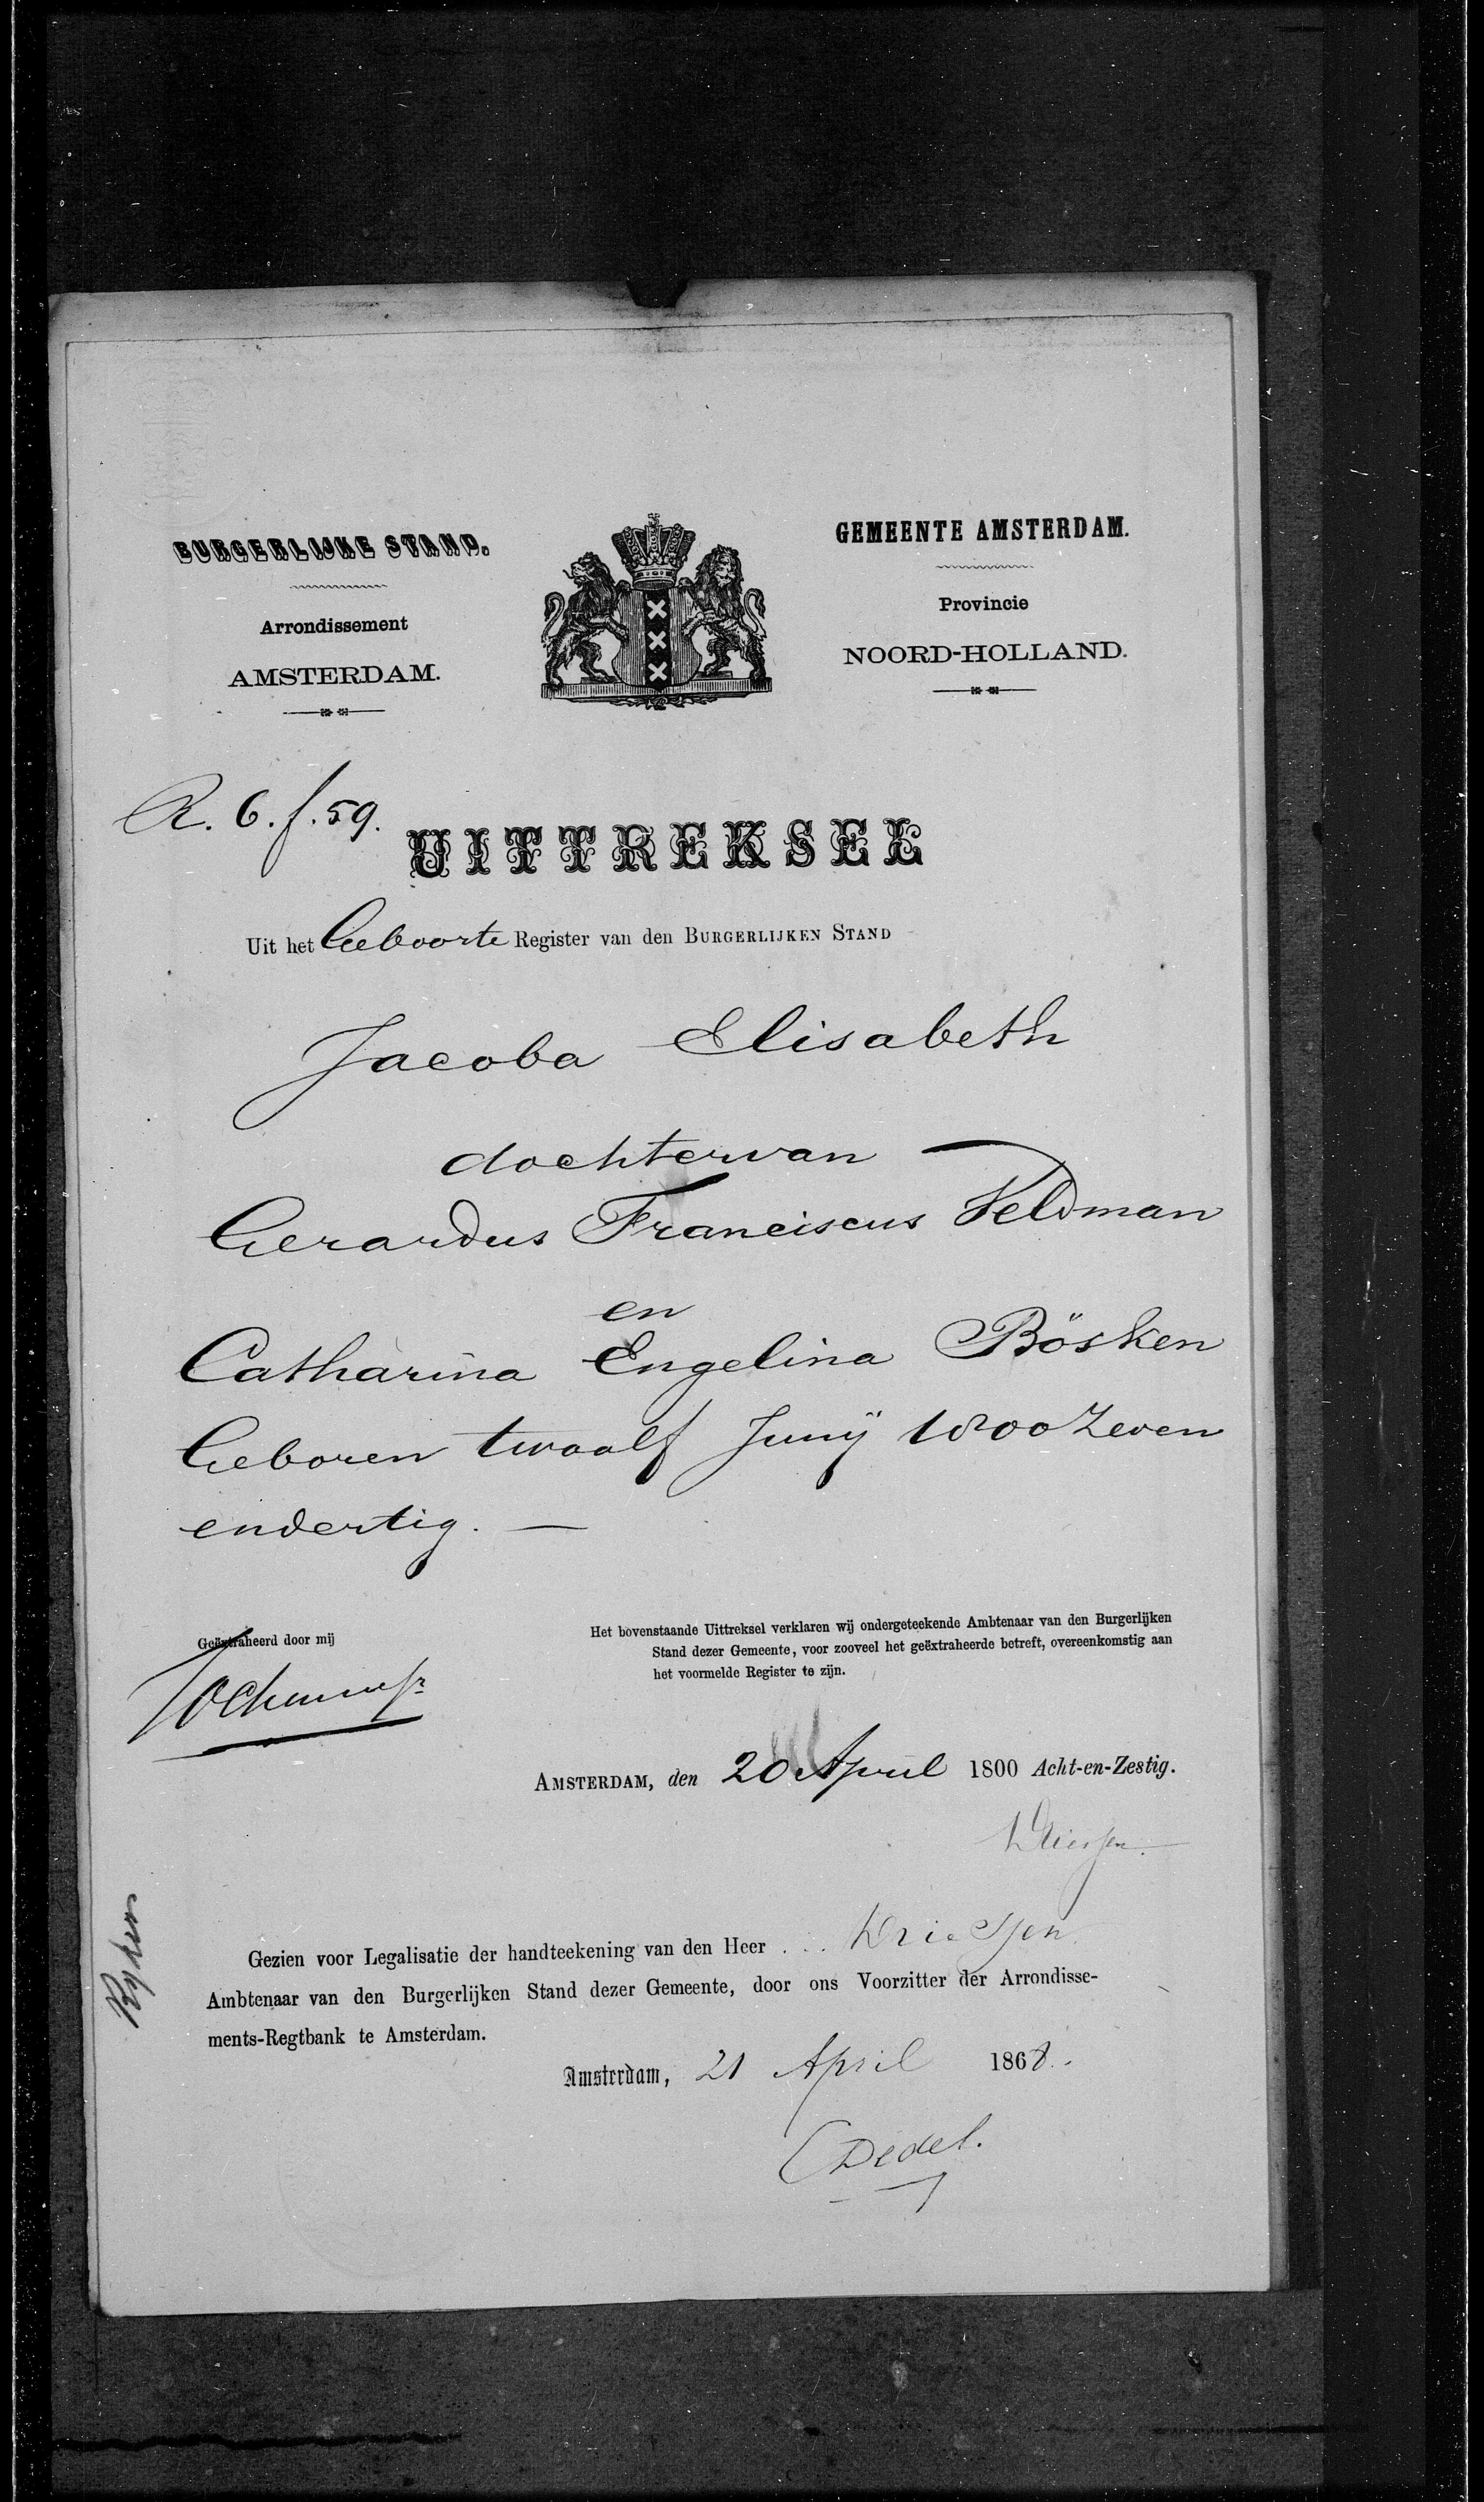 BURGERLIJKE STAND.
Arrondissement
AMSTERDAM.
GEMEENTE AMSTERDAM.
Provincie
NOORD-HOLLAND.
R. 6. f. 59.
UITTREKSEL
Uit het Geboorte Register van den BURGERLIJKEN STAND
Jacoba Elisabeth
dochter van
Gerardus Franciscus Veldman
en
Catharina Engelina Bösken
Geboren twaalf Junij 1800 Zeven
endertig.
Geëxtraheerd door mij
Het bovenstaande Uittreksel verklaren wij ondergeteekende Ambtenaar van den Burgerlijken
Stand dezer Gemeente, voor zooveel het geëxtraheerde betreft, overeenkomstig aan
het voormelde Register te zijn.
AMSTERDAM, den 20 April 1800 Acht-en-Zestig.
Gezien voor Legalisatie der handteekening van den Heer . . . Driessen
Ambtenaar van den Burgerlijken Stand dezer Gemeente, door ons Voorzitter der Arrondisse-
ments-Regtbank te Amsterdam.
Amsterdam, 21 April 1868.
Dedel.